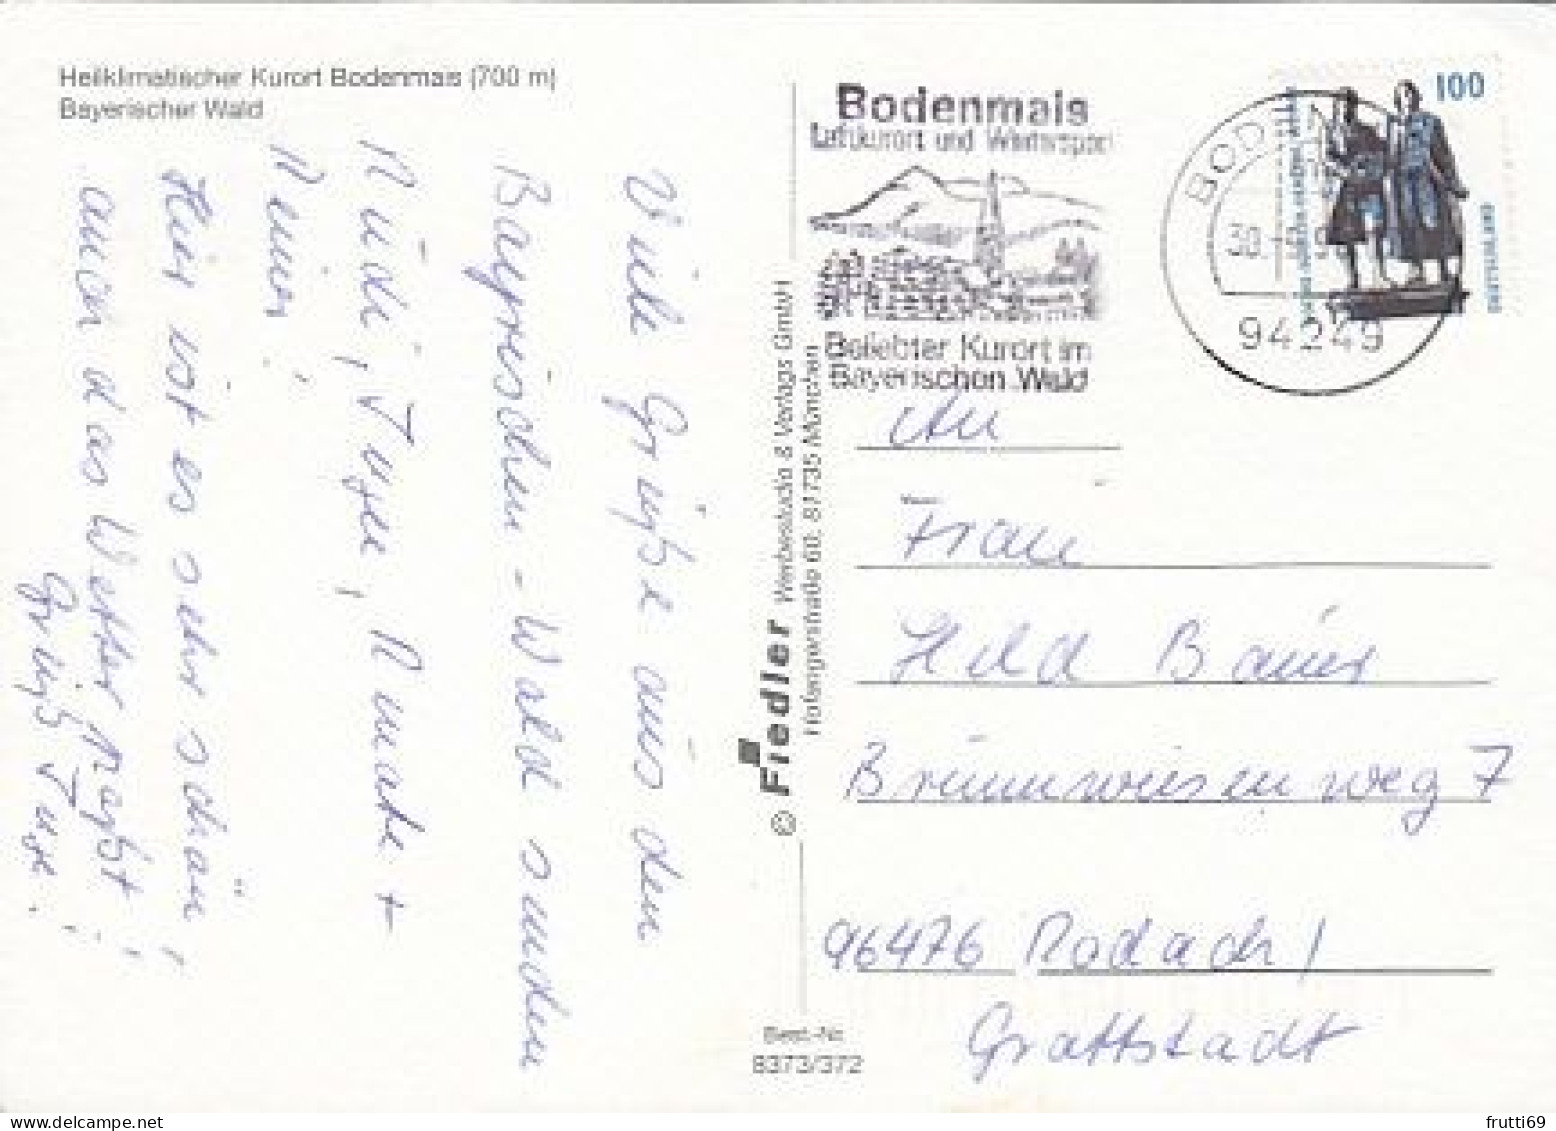 Heilklimatischer Kurort Bodenmais (700 m)
Bayerischer Wald
Viele Grüße aus dem
Bayrischen-Wald senden
Rüdi, Inge, Renate +
Reiner!
Hier ist es sehr schön!
auch das Wetter paßt!
Gruß Inge.
© Fiedler Werbestudio & Verlags GmbH
Hofangerstraße 60, 81735 München
Best.-Nr.
8373/372
Bodenmais
Luftkurort und Wintersport
Beliebter Kurort im
Bayerischen Wald
94249
100
DEUTSCHLAND
An
Frau
Hild Bauer
Brünnwiesenweg 7
96476 Rodach/
Grattstadt
frutti69